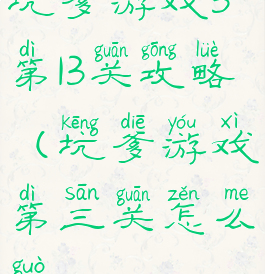 坑爹游戏3
dì guān gōng lüè
第13关攻略
kēng diē yóu xì
(坑爹游戏
dì sān guān zěn me
第三关怎么
guò